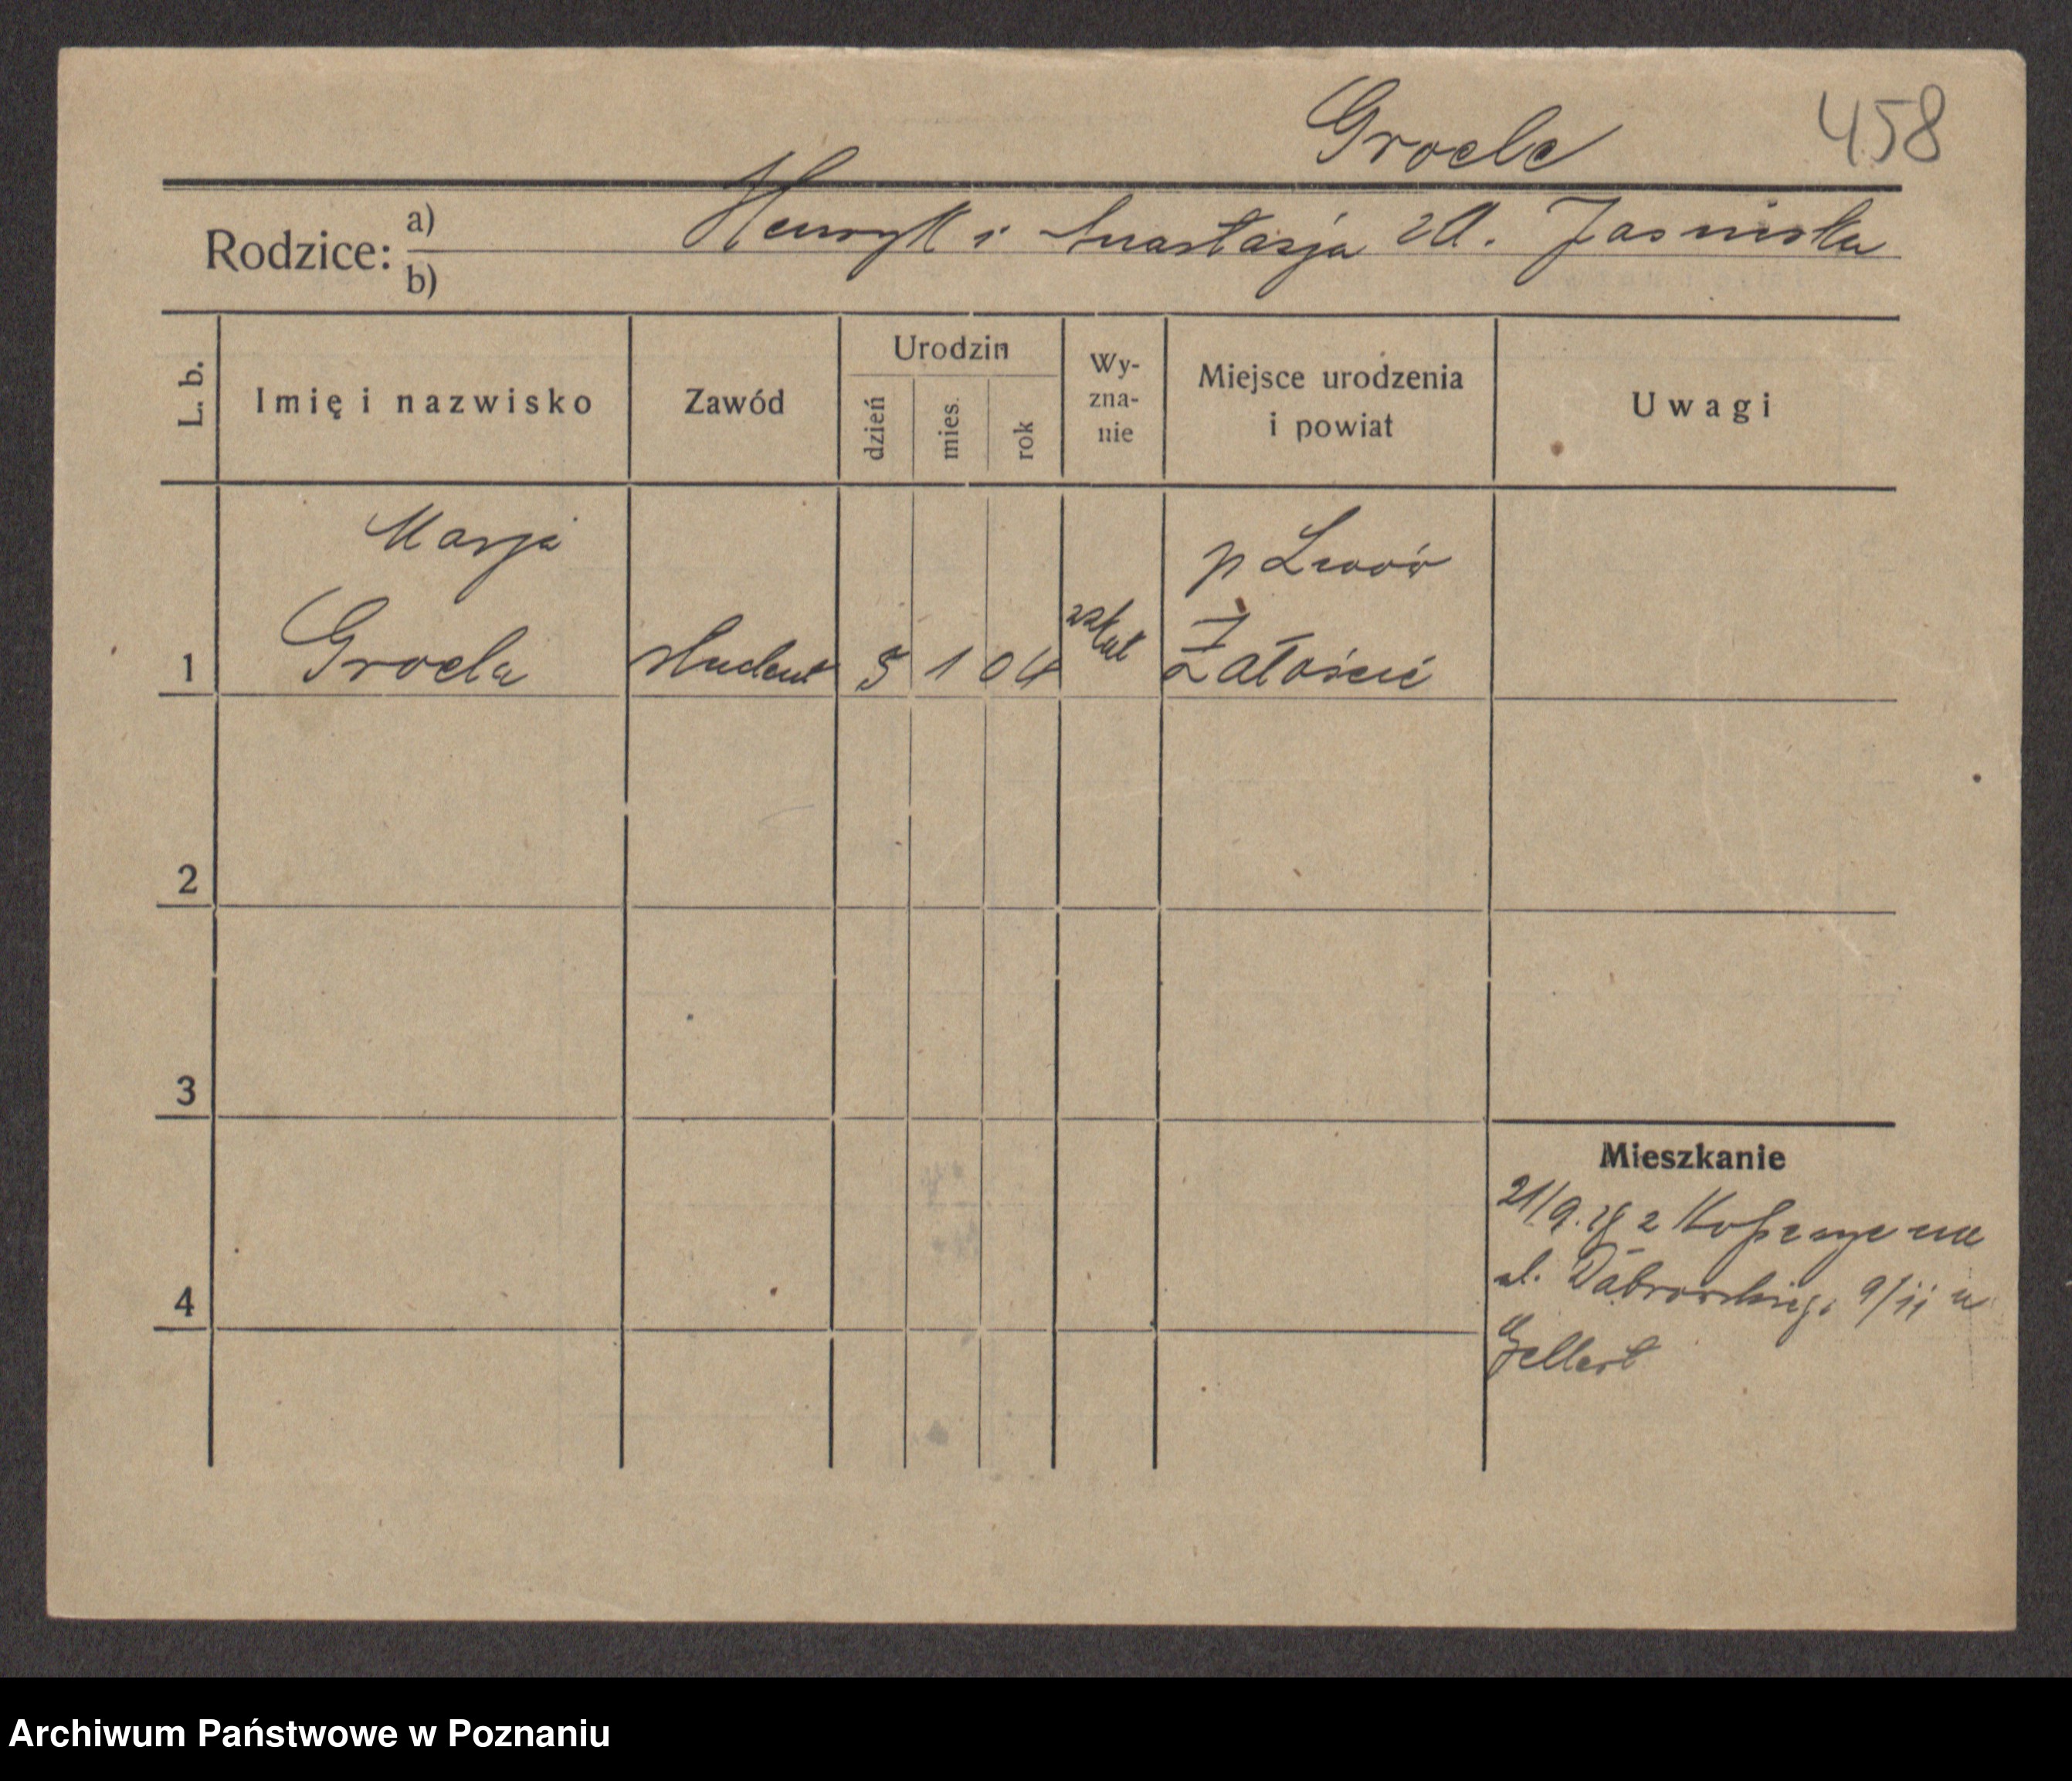 Groele
458
Rodzice: a) Henryk i Anastazja zd. Jasińska
b)
L. b.
Imię i nazwisko
Zawód
Urodzin
dzień
mies.
rok
Wy-
zna-
nie
Miejsce urodzenia
i powiat
Uwagi
Marja
p Lwów
1 Groele student 5 1 04 Załośció
2
3
4
Mieszkanie
21/9. z na
ul. Dąbrowskiego 9/II u
Gellert
Archiwum Państwowe w Poznaniu